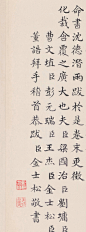 命書沈德潛兩跋於是卷末更徵
化裁含覆之廣大也夫臣梁國治臣劉墉臣
曹文埴臣彭元瑞臣王杰臣金士松臣
董誥拜手稽首恭跋臣金士松敬書